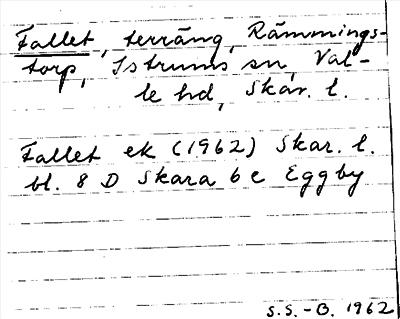 Fallet, terräng, Rämmings-
torp, Istrums sn, Val-
le hd, Skar. l.
Fallet ek (1962) Skar. l.
bl. 8 D Skara 6 e Eggby
S.S.-B. 1962